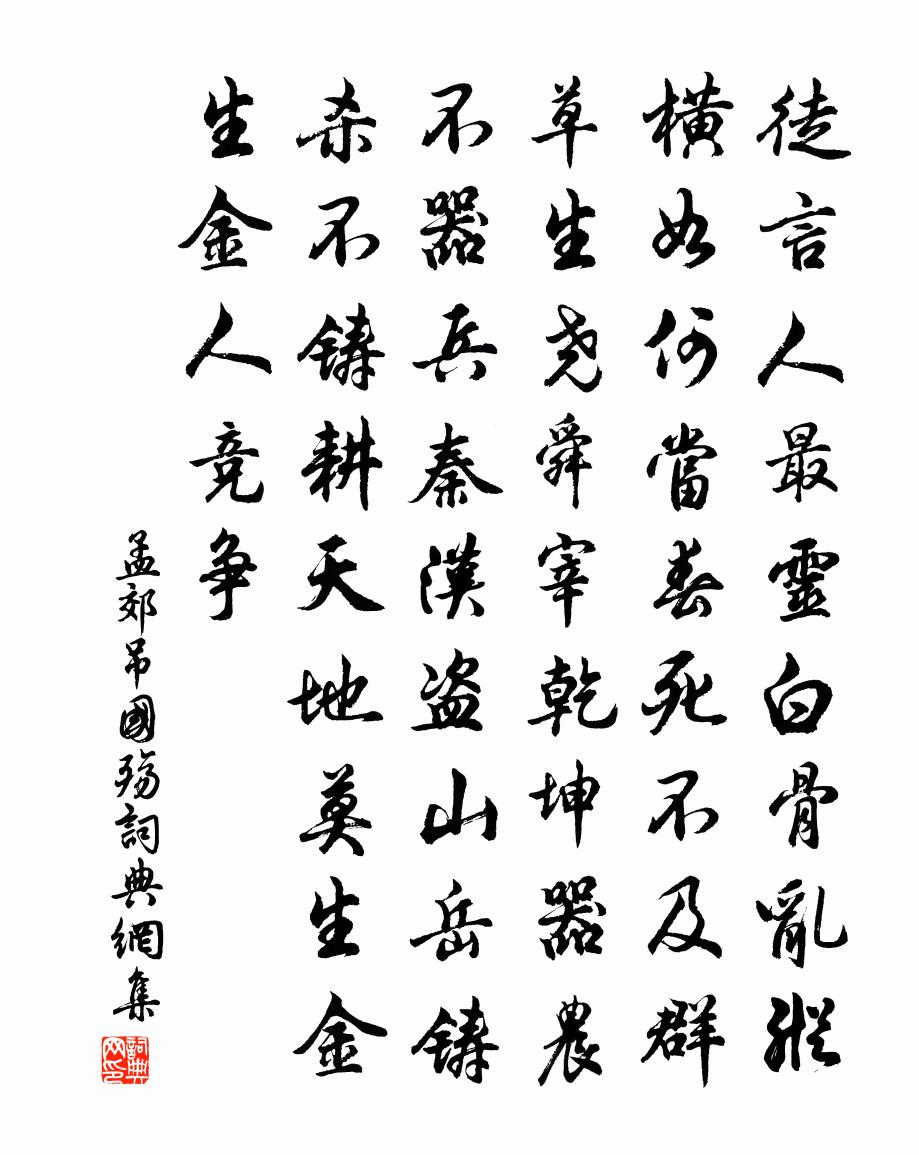 徒言人最靈白骨亂縱
橫如何當春死不及群
草生尧舜宰乾坤器農
不器兵秦漢盗山岳鋳
杀不鋳耕天地莫生金
生金人竞争
孟郊吊國殤詞典網集
詞典网印